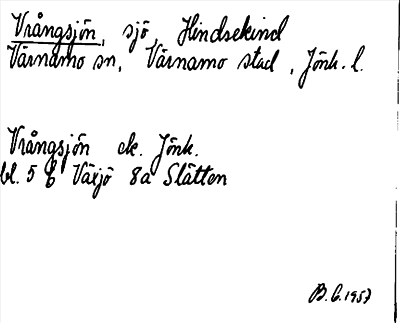 Vrångsjön, sjö, Hindsekind
Värnamo sn, Värnamo stad, Jönk. l.
Vrångsjön ek. Jönk.
bl. 5 b Växjö 8a Slätten
B. G. 1957